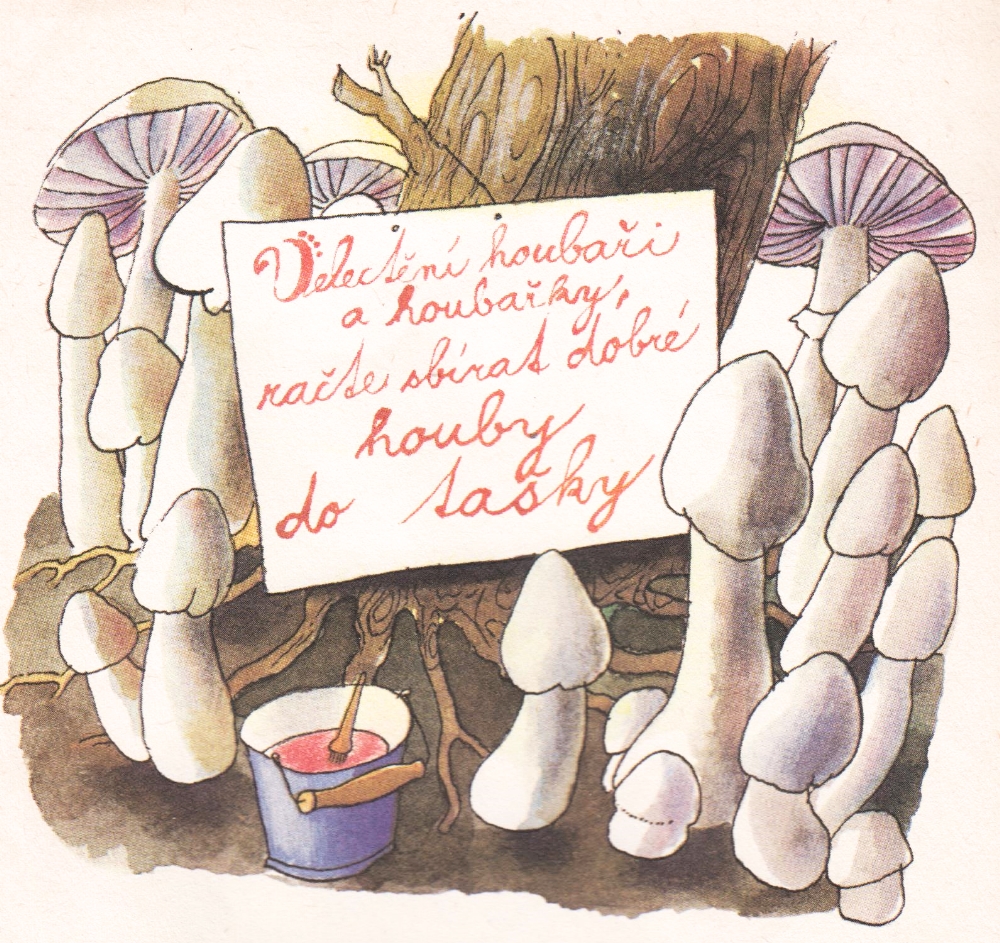 Velectění houbaři
a houbařky,
račte sbírat dobré
houby
do tašky